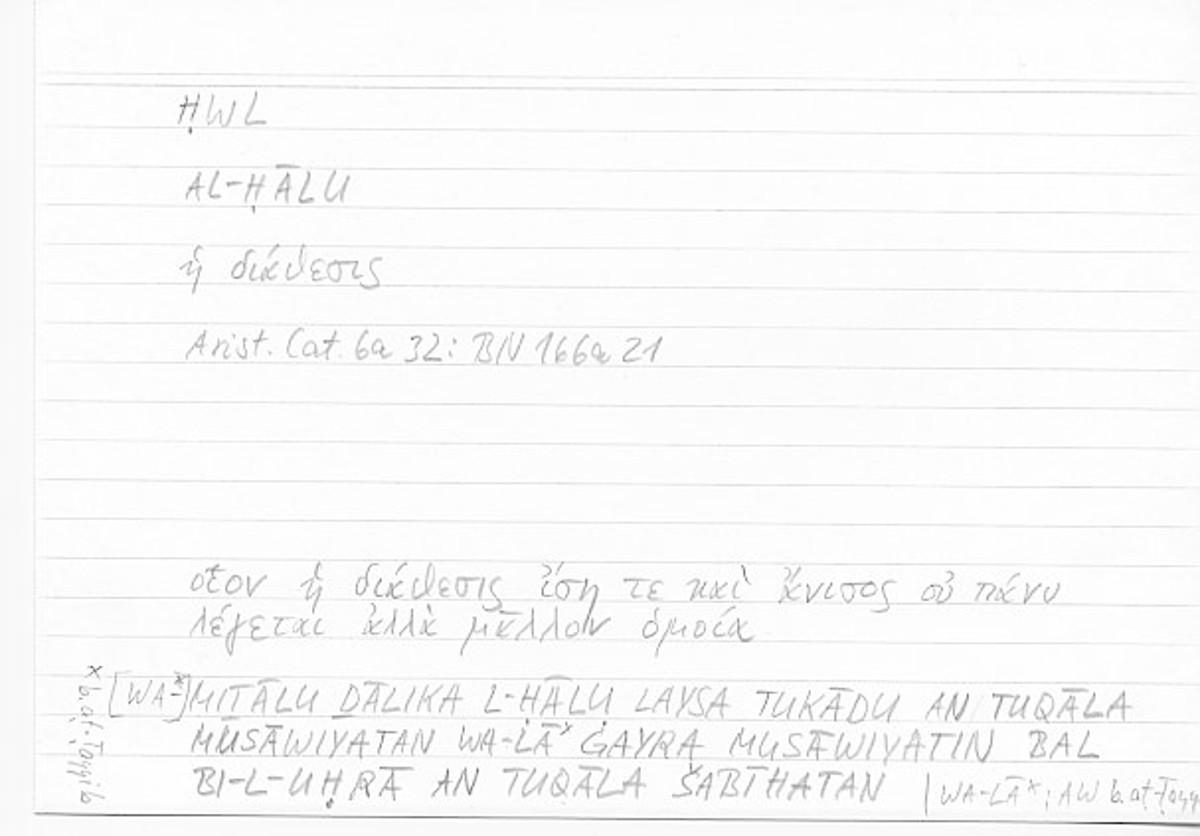 ḤWL
AL-ḤĀLU
ἡ διάθεσις
Arist. Cat. 6a 32: BN 166a 21
οἷον ἡ διάθεσις ἴση τε καὶ ἄνισος οὐ πάνυ
λέγεται ἀλλὰ μᾶλλον ὁμοία
[WA-*]MITĀLU ḎĀLIKA L-ḤĀLU LAYSA TUKĀDU AN TUQĀLA
MUSĀWIYATAN WA-LĀ* ĠAYRA MUSĀWIYATIN BAL
BI-L-UḤRĀ AN TUQĀLA ŠABĪHATAN | WA-LĀ*: AW b. aṭ-Ṭayy
* b. aṭ-Ṭayyib